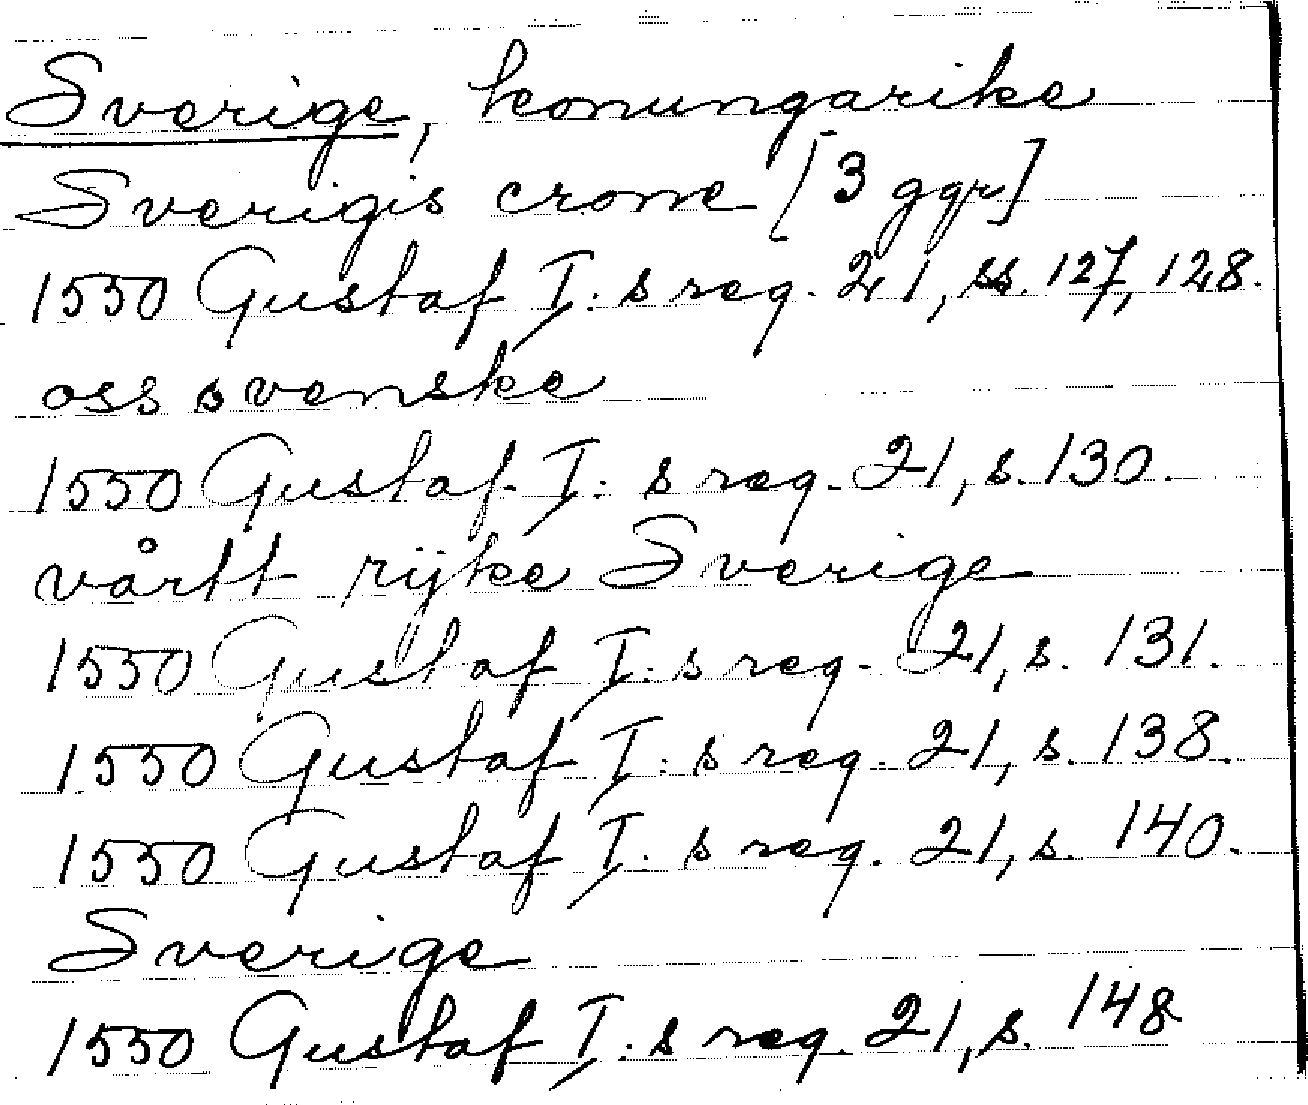 Sverige, konungarike
Sverigis crone [3 ggr]
1550 Gustaf I:s reg. 21, ss. 127, 128.
oss svenske
1550 Gustaf I:s reg. 21, s. 130.
vårtt rijke Sverige
1550 Gustaf I:s reg. 21, s. 131.
1550 Gustaf I:s reg. 21, s. 138.
1550 Gustaf I:s reg. 21, s. 140.
Sverige
1550 Gustaf I:s reg. 21, s. 148